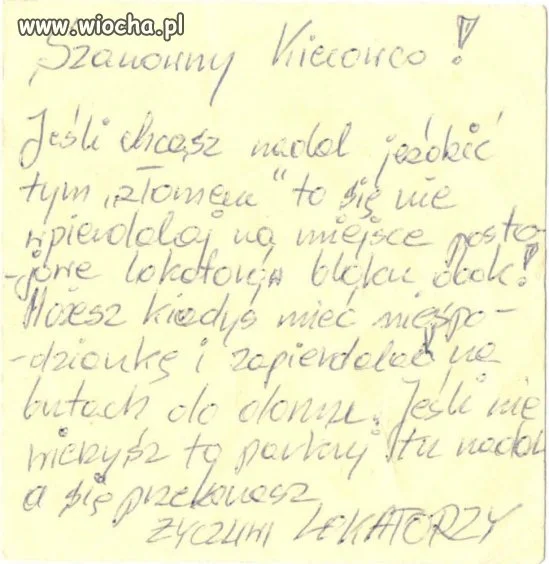 www.wiocha.pl
Szanowny Kierowco!
Jeśli chcesz nadal jeździć
tym „złomem" to się nie
wpierdalaj na miejsce posto-
-jowe lokatorów bloku obok!
Możesz kiedyś mieć niespo-
-dziankę i zapierdalać na
butach do domu. Jeśli nie
wierzysz to parkuj tu nadal
a się przekonasz
ŻYCZLIWI LOKATORZY